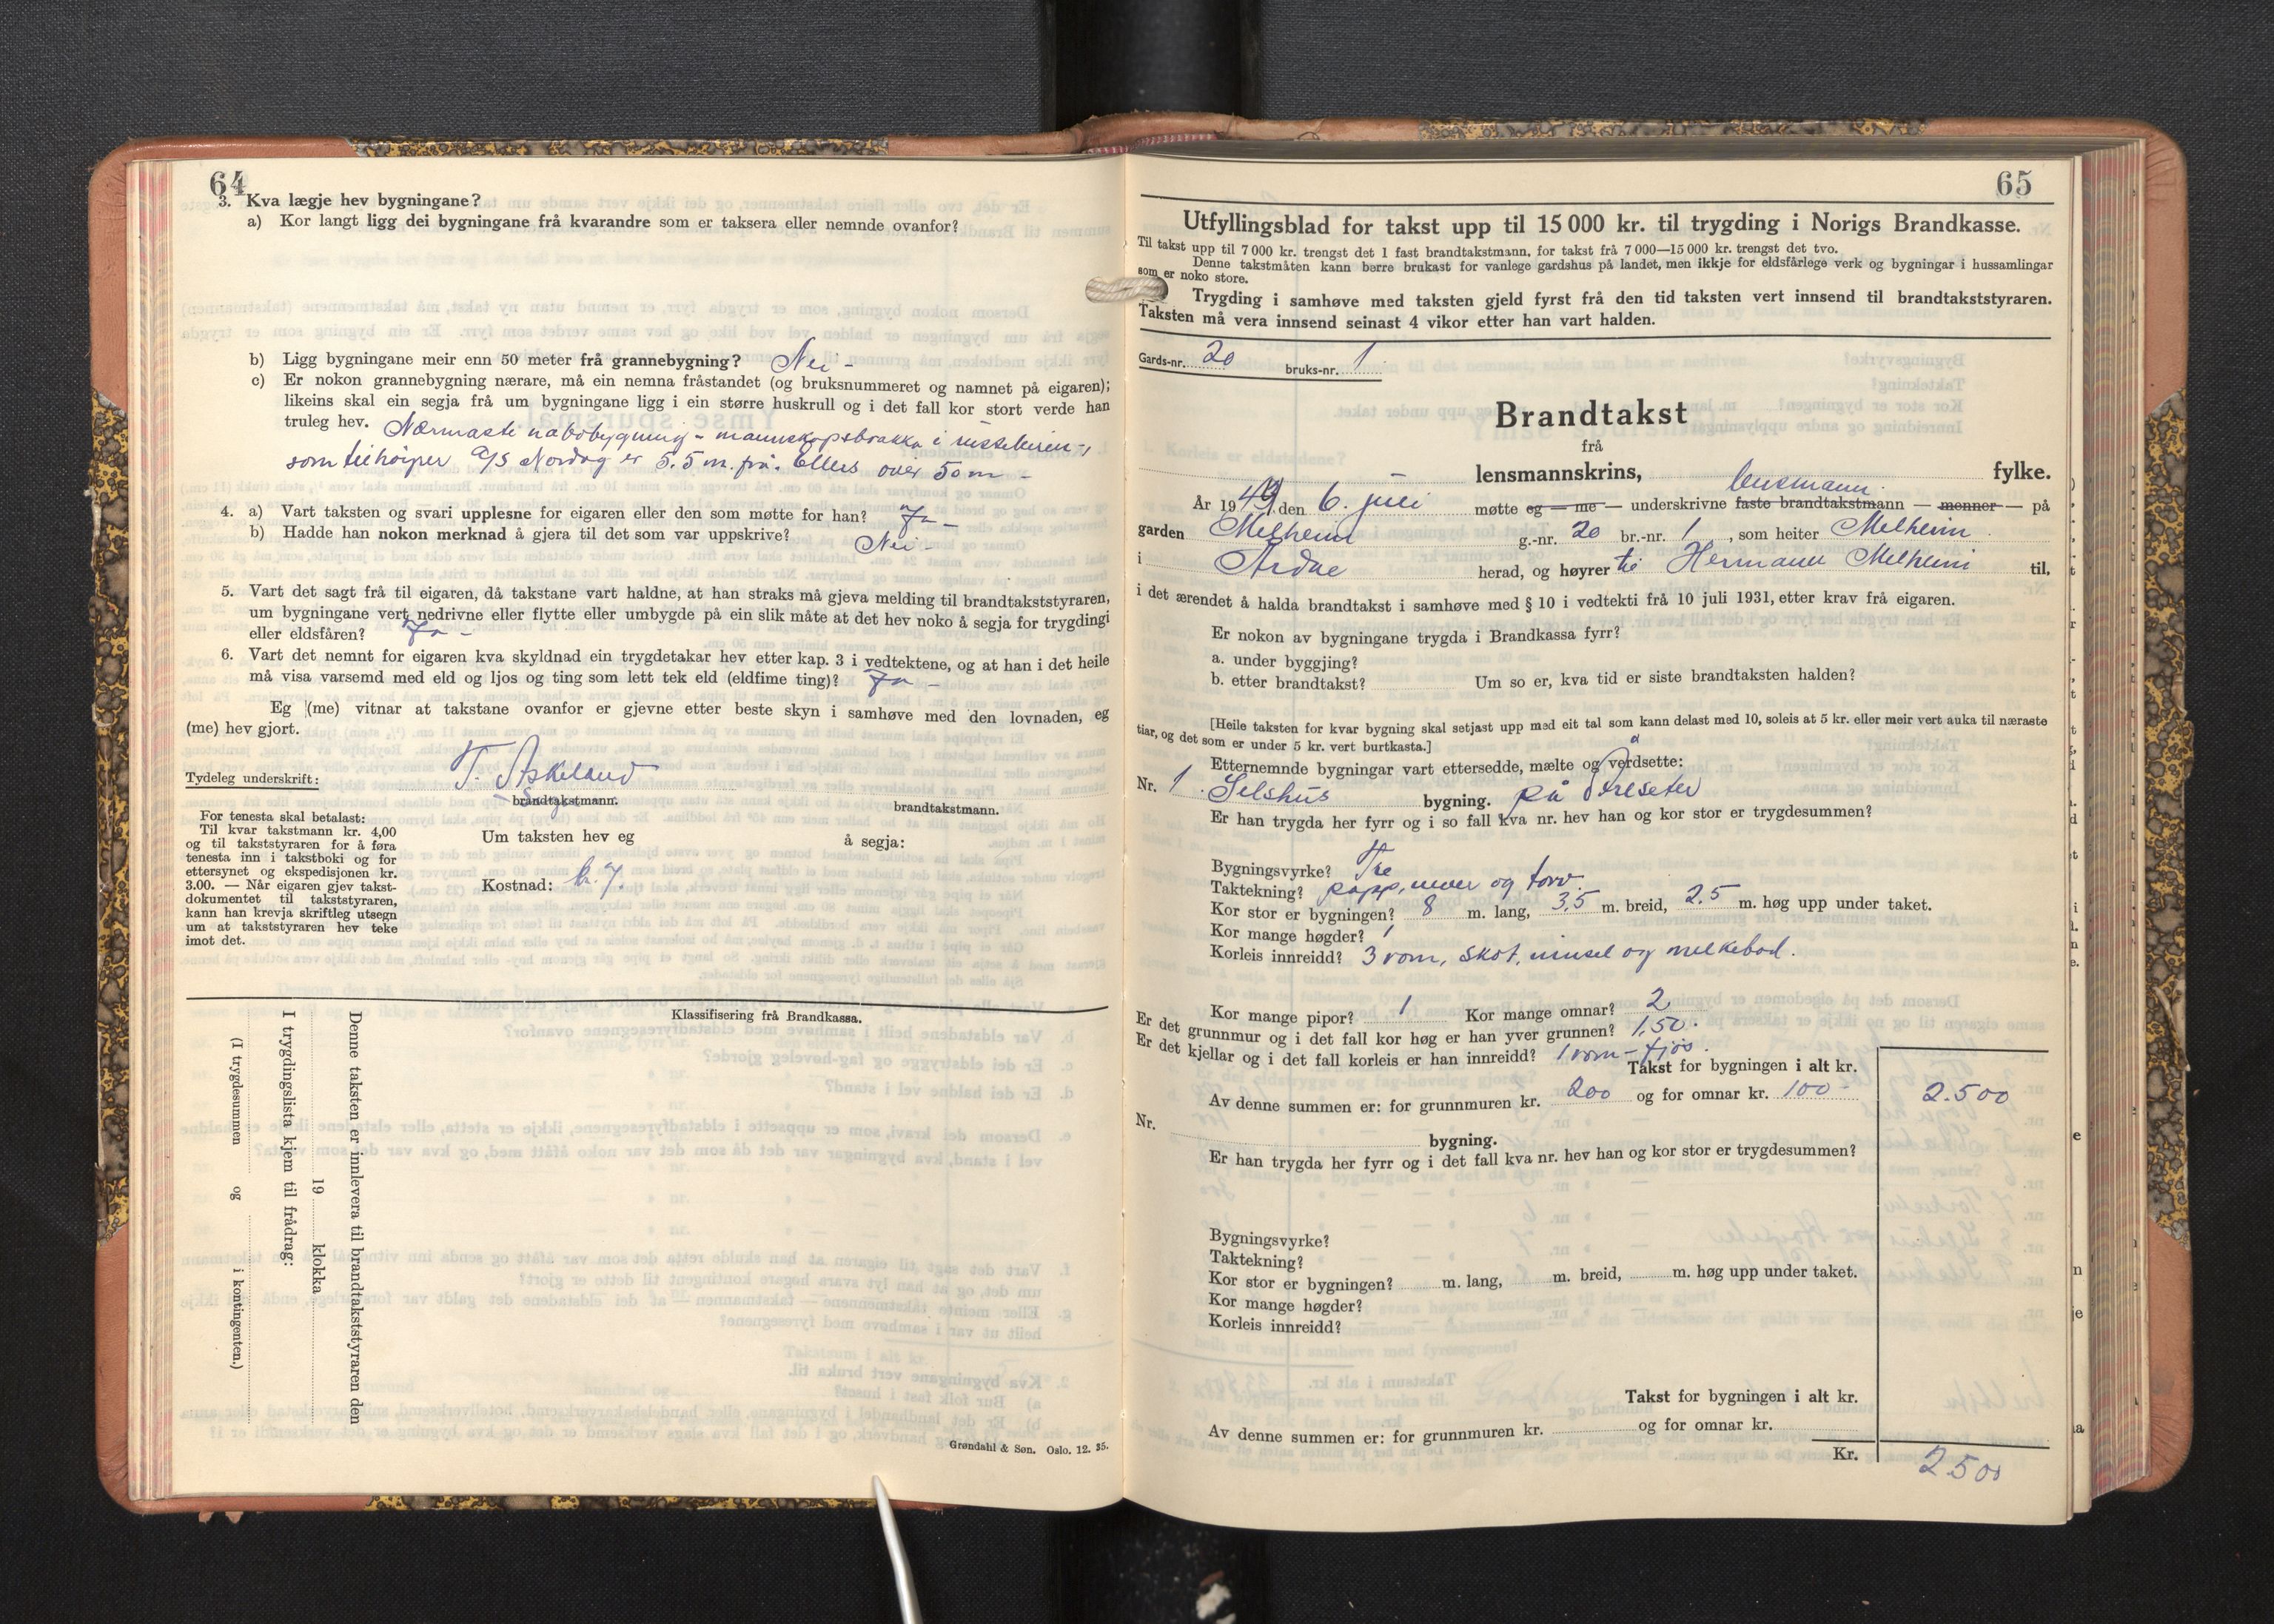 64
3. Kva lægje hev bygningane?
a) Kor langt ligg dei bygningane frå kvarandre som er taksera eller nemnde ovanfor?
b) Ligg bygningane meir enn 50 meter frå grannebygning? Nei -
c) Er nokon grannebygning nærare, må ein nemna fråstandet (og bruksnummeret og namnet på eigaren);
likeins skal ein segja frå um bygningane ligg i ein større huskrull og i det fall kor stort verde han
truleg hev. Nærmaste nabobygning - mannskapsbrakka i
som tilhøyrer A/S Nordag er 5.5 m. frå. Ellers over 50 m -
4. a) Vart taksten og svari upplesne for eigaren eller den som møtte for han? Ja -
b) Hadde han nokon merknad å gjera til det som var uppskrive? Nei -
5. Vart det sagt frå til eigaren, då takstane vart haldne, at han straks må gjeva melding til brandtakststyraren,
um bygningane vert nedrivne eller flytte eller umbygde på ein slik måte at det hev noko å segja for trygdingi
eller eldsfåren? Ja -
6. Vart det nemnt for eigaren kva skyldnad ein trygdetakar hev etter kap. 3 i vedtektene, og at han i det heile
må visa varsemd med eld og ljos og ting som lett tek eld (eldfime ting)? Ja -
Eg (me) vitnar at takstane ovanfor er gjevne etter beste skyn i samhøve med den lovnaden, eg
(me) hev gjort.
Tydeleg underskrift: T. Askeland
brandtakstmann. brandtakstmann.
For tenesta skal betalast:
Til kvar takstmann kr. 4,00
og til takststyraren for å føra
tenesta inn i takstboki og for
ettersynet og ekspedisjonen kr.
3.00. — Når eigaren gjev takst-
dokumentet til takststyraren,
kann han krevja skriftleg utsegn
um at takststyraren hev teke
imot det.
Um taksten hev eg å segja:
Kostnad: kr. 7.
Klassifisering frå Brandkassa.
Denne taksten er innlevera til brandtakststyraren den
19 klokka
I trygdingslista kjem til frådrag:
(I trygdesummen og i kontingenten.)
Grøndahl & Søn. Oslo. 12. 35.
65
Utfyllingsblad for takst upp til 15 000 kr. til trygding i Norigs Brandkasse.
Til takst upp til 7 000 kr. trengst det 1 fast brandtakstmann, for takst frå 7 000—15 000 kr. trengst det tvo.
Denne takstmåten kann berre brukast for vanlege gardshus på landet, men ikkje for eldsfårlege verk og bygningar i hussamlingar
som er noko store.
Trygding i samhøve med taksten gjeld fyrst frå den tid taksten vert innsend til brandtakststyraren.
Taksten må vera innsend seinast 4 vikor etter han vart halden.
Gards-nr. 20 bruks-nr. 1
Brandtakst
frå
lensmannskrins, fylke.
lensmann
År 1949 den 6. juli møtte eg — me — underskrivne faste brandtakstmann — menner — på
garden Melheim g.-nr. 20 br.-nr. 1, som heiter Melheim
i Årdal herad, og høyrer til Hermann Melheim til,
i det ærendet å halda brandtakst i samhøve med § 10 i vedtekti frå 10 juli 1931, etter krav frå eigaren.
Er nokon av bygningane trygda i Brandkassa fyrr?
a. under byggjing?
b. etter brandtakst? Um so er, kva tid er siste brandtaksten halden?
[Heile taksten for kvar bygning skal setjast upp med eit tal som kann delast med 10, soleis at 5 kr. eller meir vert auka til næraste
tiar, og det som er under 5 kr. vert burtkasta.]
Etternemnde bygningar vart ettersedde, mælte og verdsette:
Nr. 1. Selshus bygning. på
Er han trygda her fyrr og i so fall kva nr. hev han og kor stor er trygdesummen?
Bygningsvyrke? Tre
Taktekning? papp, never og torv.
Kor stor er bygningen? 8 m. lang, 3,5 m. breid, 2.5 m. høg upp under taket.
Kor mange høgder? 1
Korleis innreidd? 3 rom, skot, innsel og melkebod.
Kor mange pipor? 1 Kor mange omnar? 2
Er det grunnmur og i det fall kor høg er han yver grunnen? 1,50.
Er det kjellar og i det fall korleis er han innreidd? 1 rom - fjøs.
Takst for bygningen i alt kr. 2.500
Av denne summen er: for grunnmuren kr. 200 og for omnar kr. 100-
Nr. bygning.
Er han trygda her fyrr og i det fall kva nr. hev han og kor stor er trygdesummen?
Bygningsvyrke?
Taktekning?
Kor stor er bygningen? m. lang, m. breid, m. høg upp under taket.
Kor mange høgder?
Korleis innreidd?
Takst for bygningen i alt kr.
Av denne summen er: for grunnmuren kr. og for omnar kr.
Kr. 2500